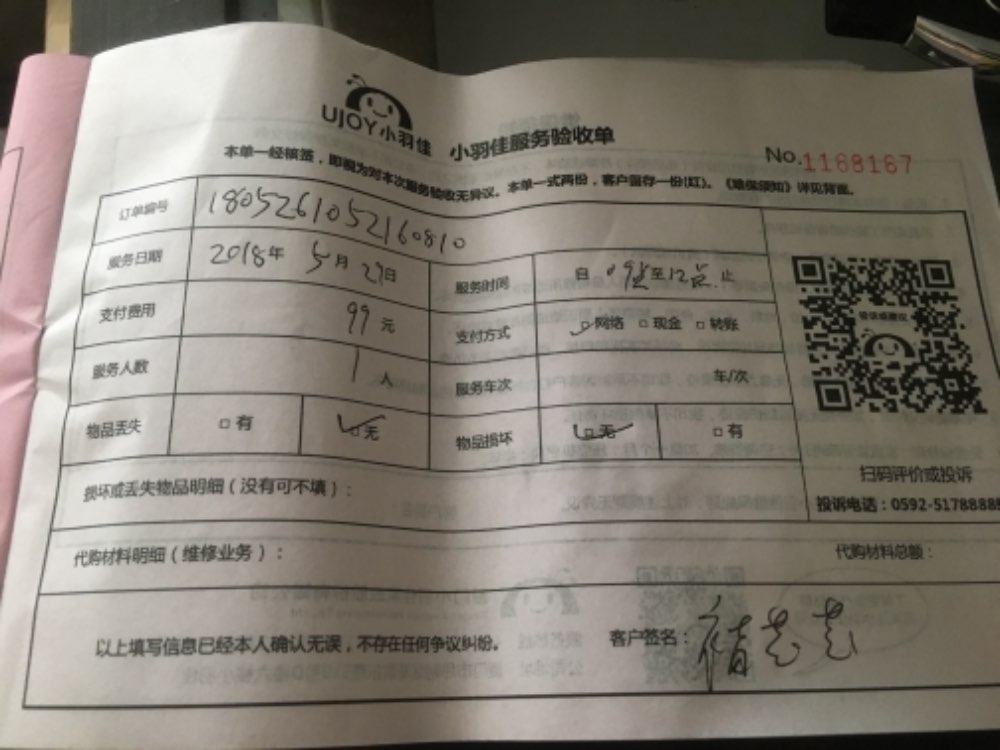 UJOY小羽佳 小羽佳服务验收单
No.1168167
本单一经核签，即视为对本次服务验收无异议。本单一式两份，客户留存一份(红)。《维保须知》详见背面。
订单编号 1805261052160810
服务日期 2018年 5月 29日 服务时间 自 09点至12点 止
支付费用 99元 支付方式 ☑网络 □现金 □转账
服务人数 1人 服务车次 车/次
物品丢失 □有 ☑无 物品损坏 ☑无 □有
扫码评价或投诉
损坏或丢失物品明细（没有可不填）：
投诉电话：0592-5178888
代购材料明细（维修业务）： 代购材料总额：
以上填写信息已经本人确认无误，不存在任何争议纠纷。 客户签名：